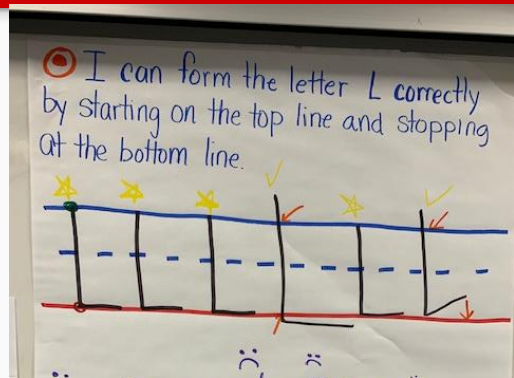 I can form the letter L correctly
by starting on the top line and stopping
at the bottom line.
L L L L L L